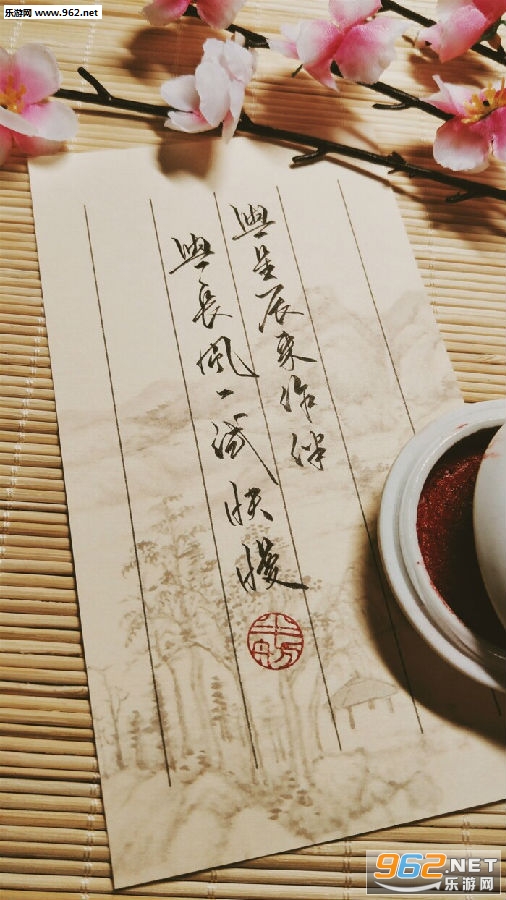 乐游网 www.962.net
與星辰来作伴
與長風一试快慢
半舫
962.NET
乐游网